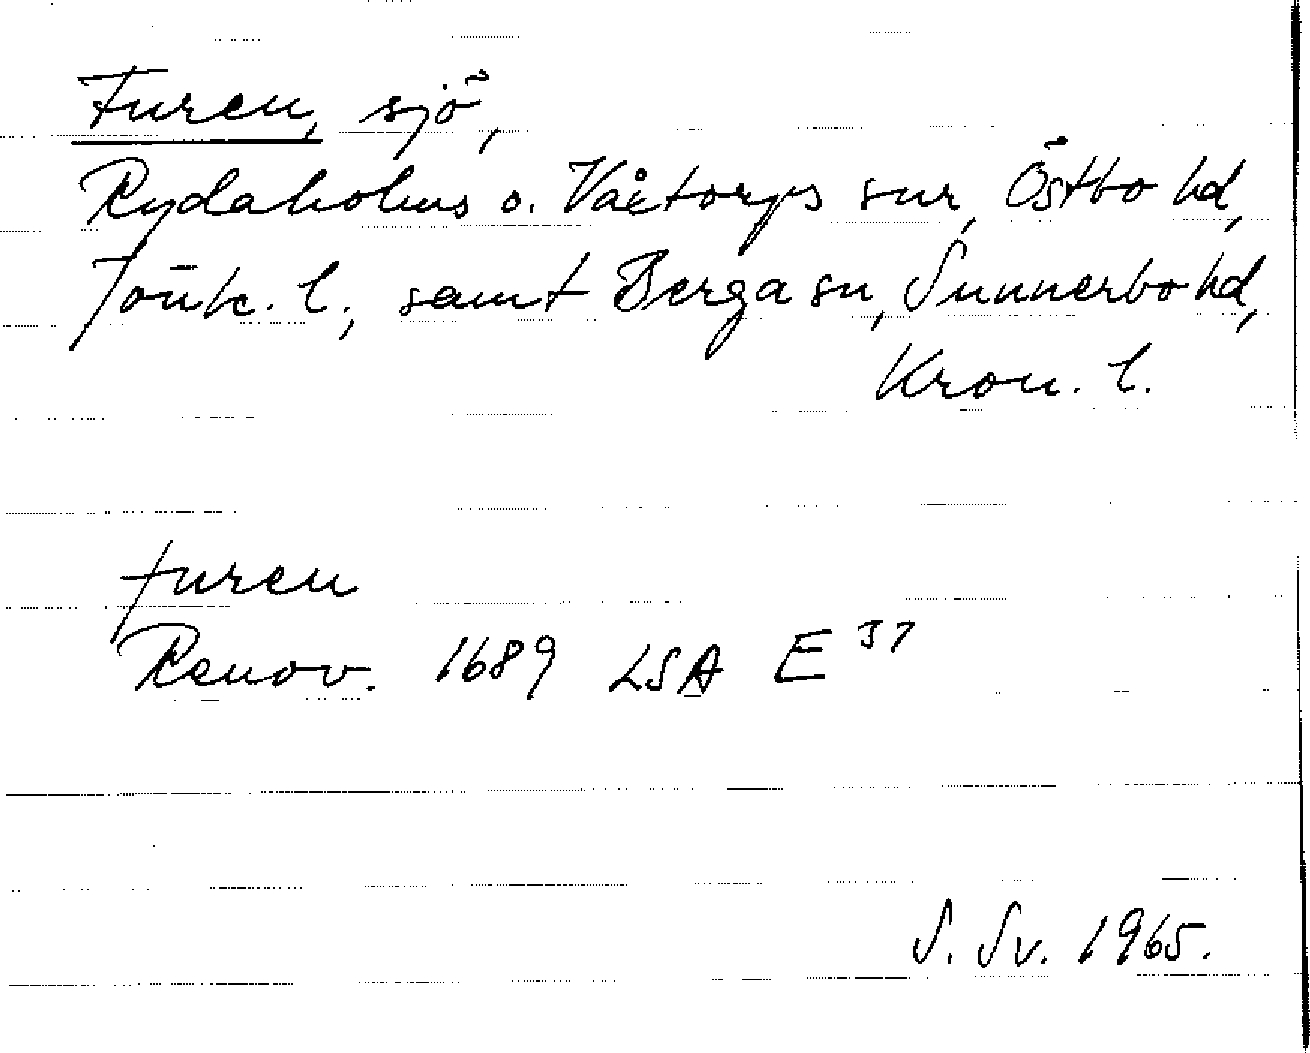 Furen, sjö,
Rydaholms o. Våxtorps snr, Östbo hd,
Jönk. l., samt Berga sn, Sunnerbo hd,
Kron. l.
furen
Renov. 1689 LSA E 37
S. Sv. 1965.